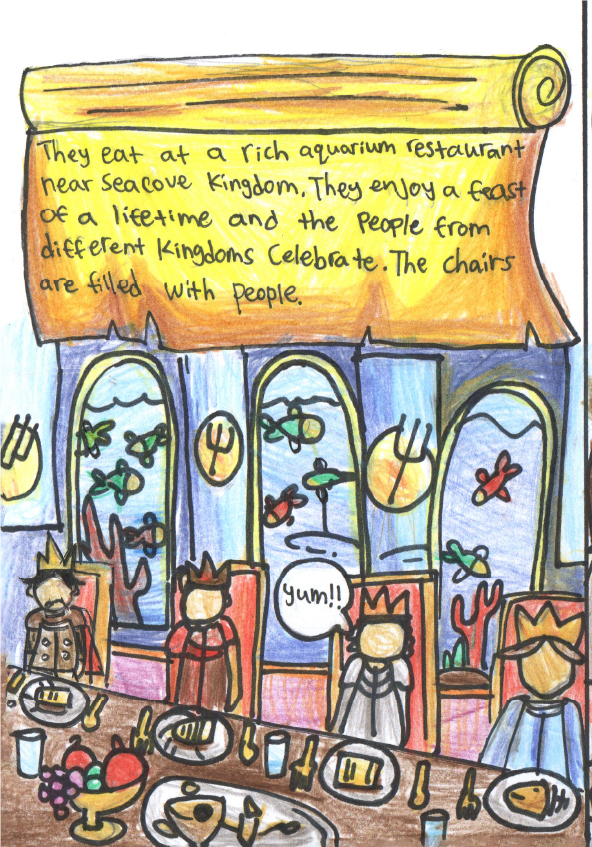 They eat at a rich aquarium restaurant
near Seacove Kingdom. They enjoy a feast
of a lifetime and the People from
different Kingdoms Celebrate. The chairs
are filled with people.
yum!!